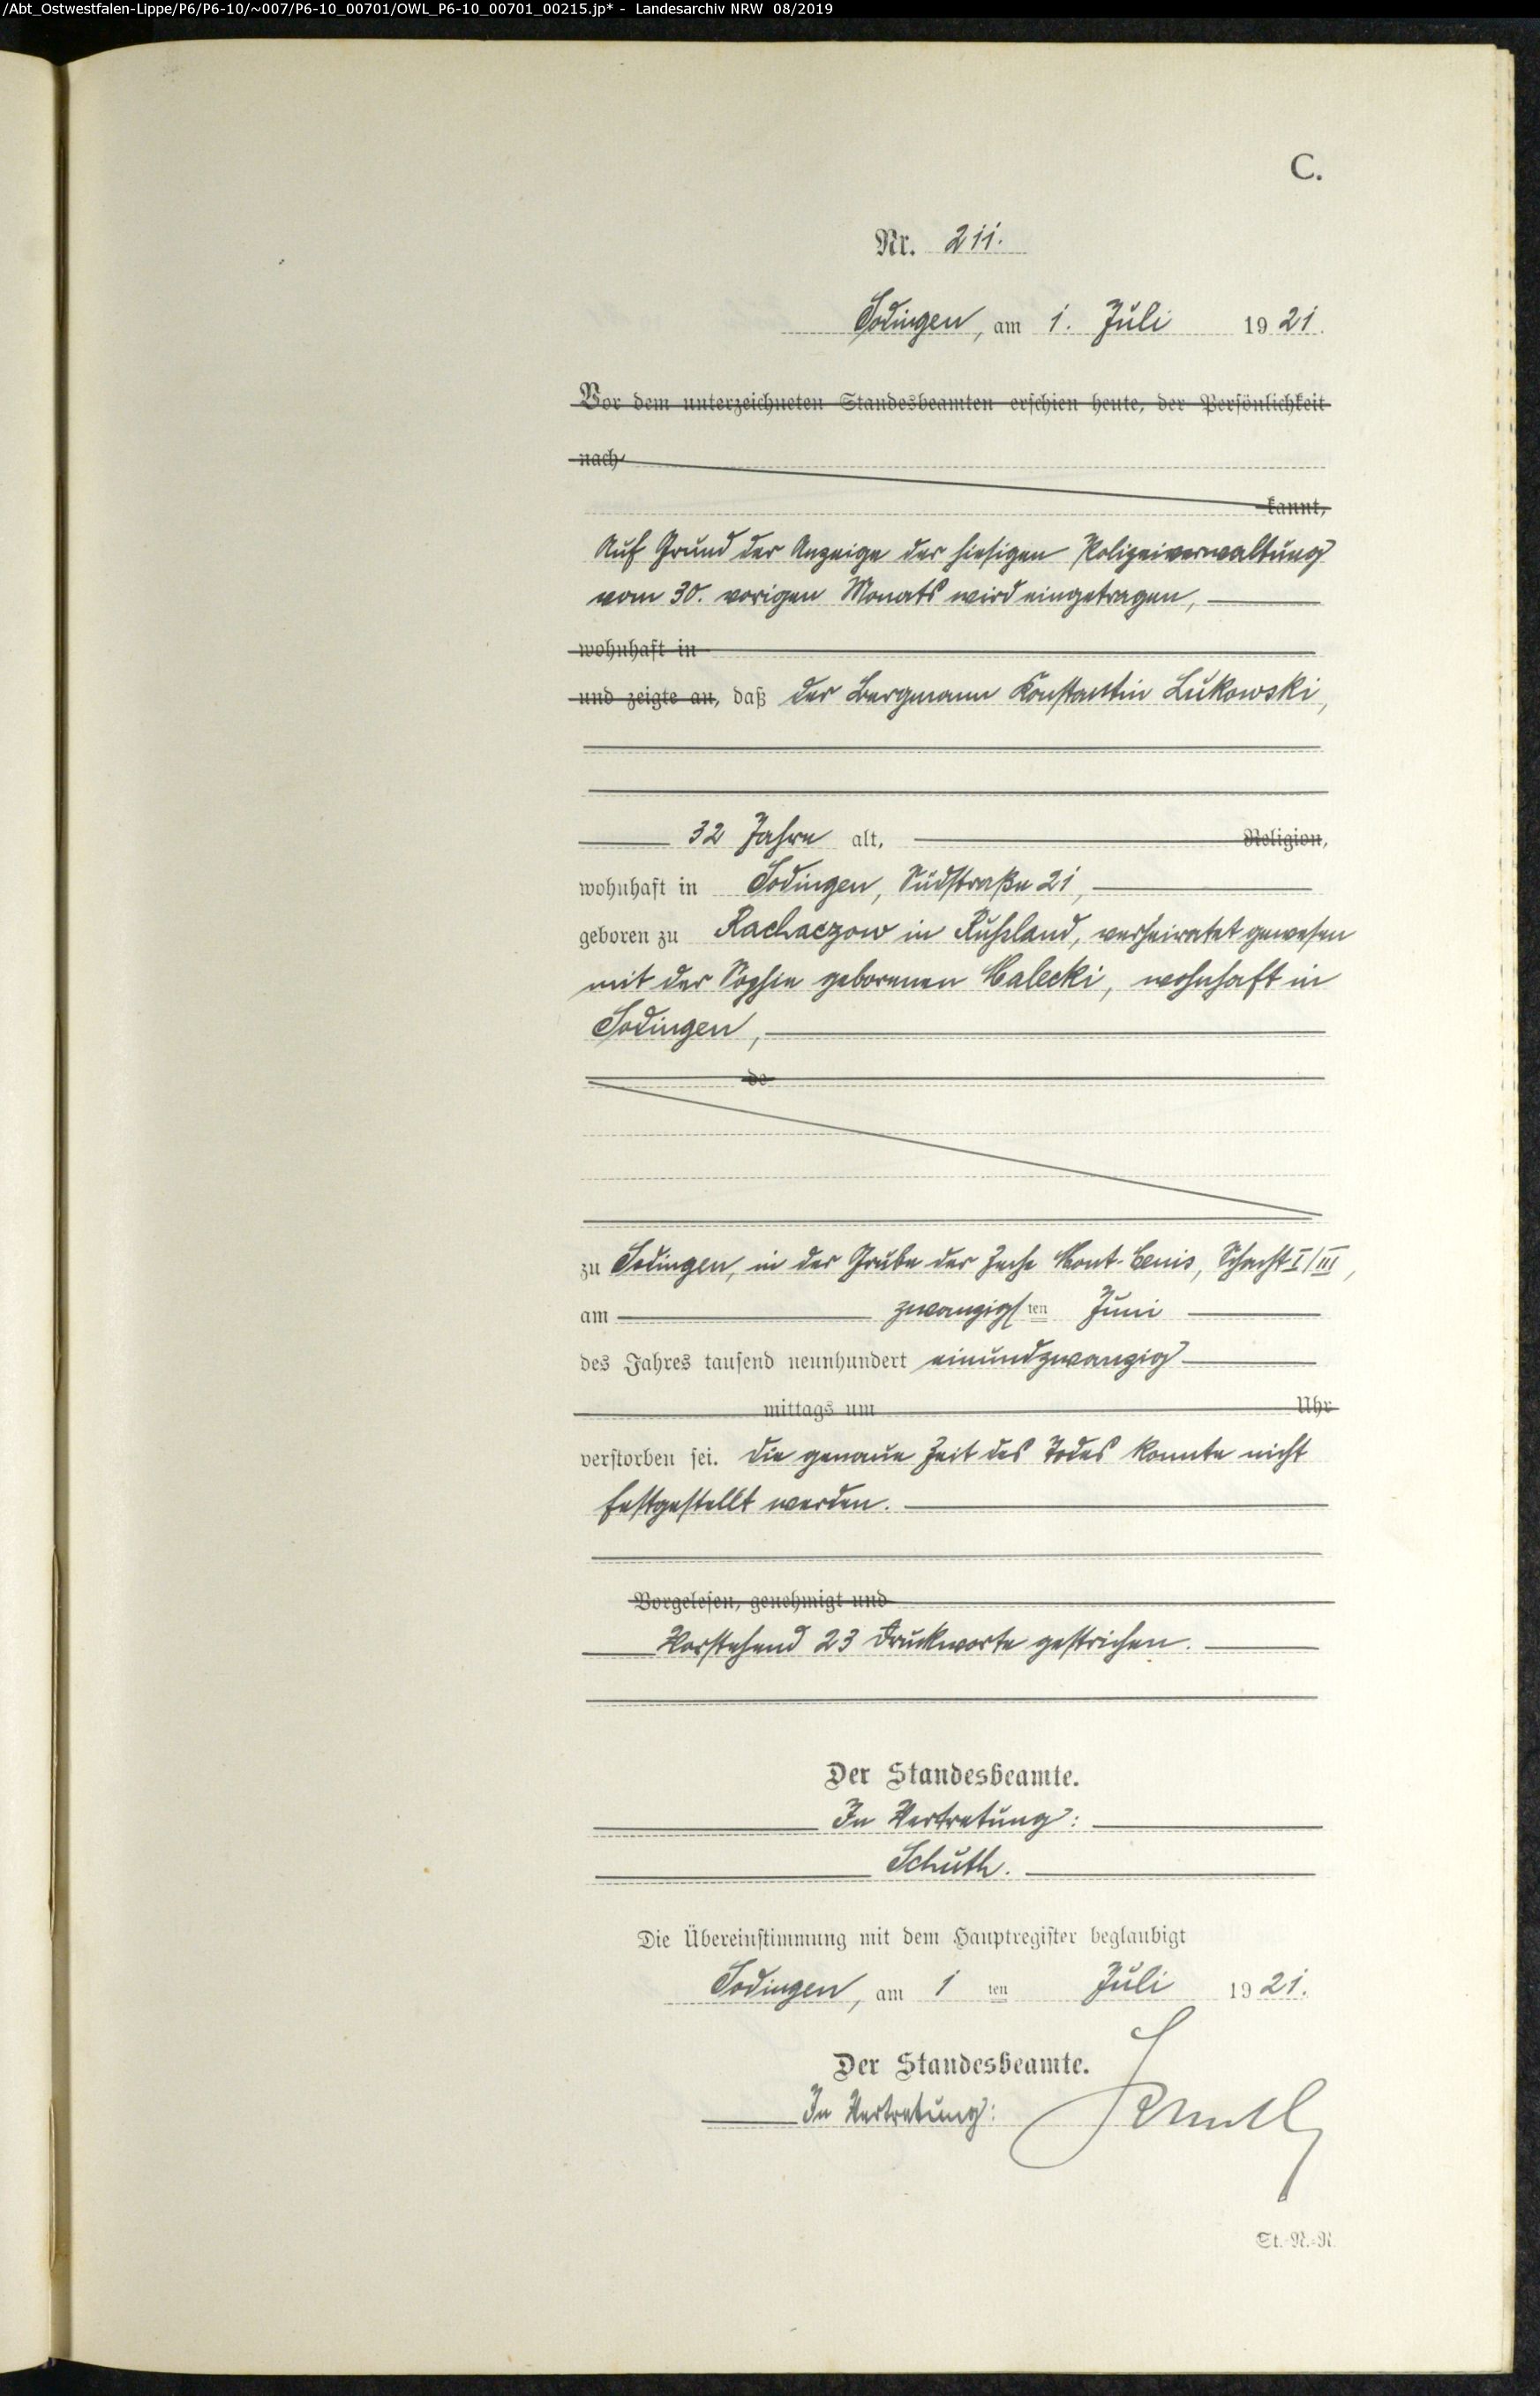 /Abt_Ostwestfalen-Lippe/P6/P6-10/~007/P6-10_00701/OWL_P6-10_00701_00215.jp* - Landesarchiv NRW 08/2019
C.
Nr. 211.
Sodingen, am 1. Juli 1921.
Vor dem unterzeichneten Standesbeamten erschien heute, der Persönlichkeit
nach
kannt,
Auf Grund der Anzeige der hiesigen Polizeiverwaltung
vom 30. vorigen Monats wird eingetragen,
wohnhaft in
und zeigte an, daß der Bergmann Konstantin Lukowski,
32 Jahre alt, Religion,
wohnhaft in Sodingen, Südstraße 21,
geboren zu Rachaczow in Rußland, verheiratet gewesen
mit der Sophie geborenen Malecki, wohnhaft in
Sodingen,
de
zu Sodingen, in der Grube der Zeche Mont-Cenis, Schacht I/III,
am zwanzigsten Juni
des Jahres tausend neunhundert einundzwanzig
mittags um Uhr
verstorben sei. Die genaue Zeit des Todes konnte nicht
festgestellt werden.
Vorgelesen, genehmigt und
Vorstehend 23 Druckworte gestrichen.
Der Standesbeamte.
In Vertretung:
Schuth.
Die Übereinstimmung mit dem Hauptregister beglaubigt
Sodingen, am 1 ten Juli 1921.
Der Standesbeamte.
In Vertretung: Schuth
St.-N.-R.